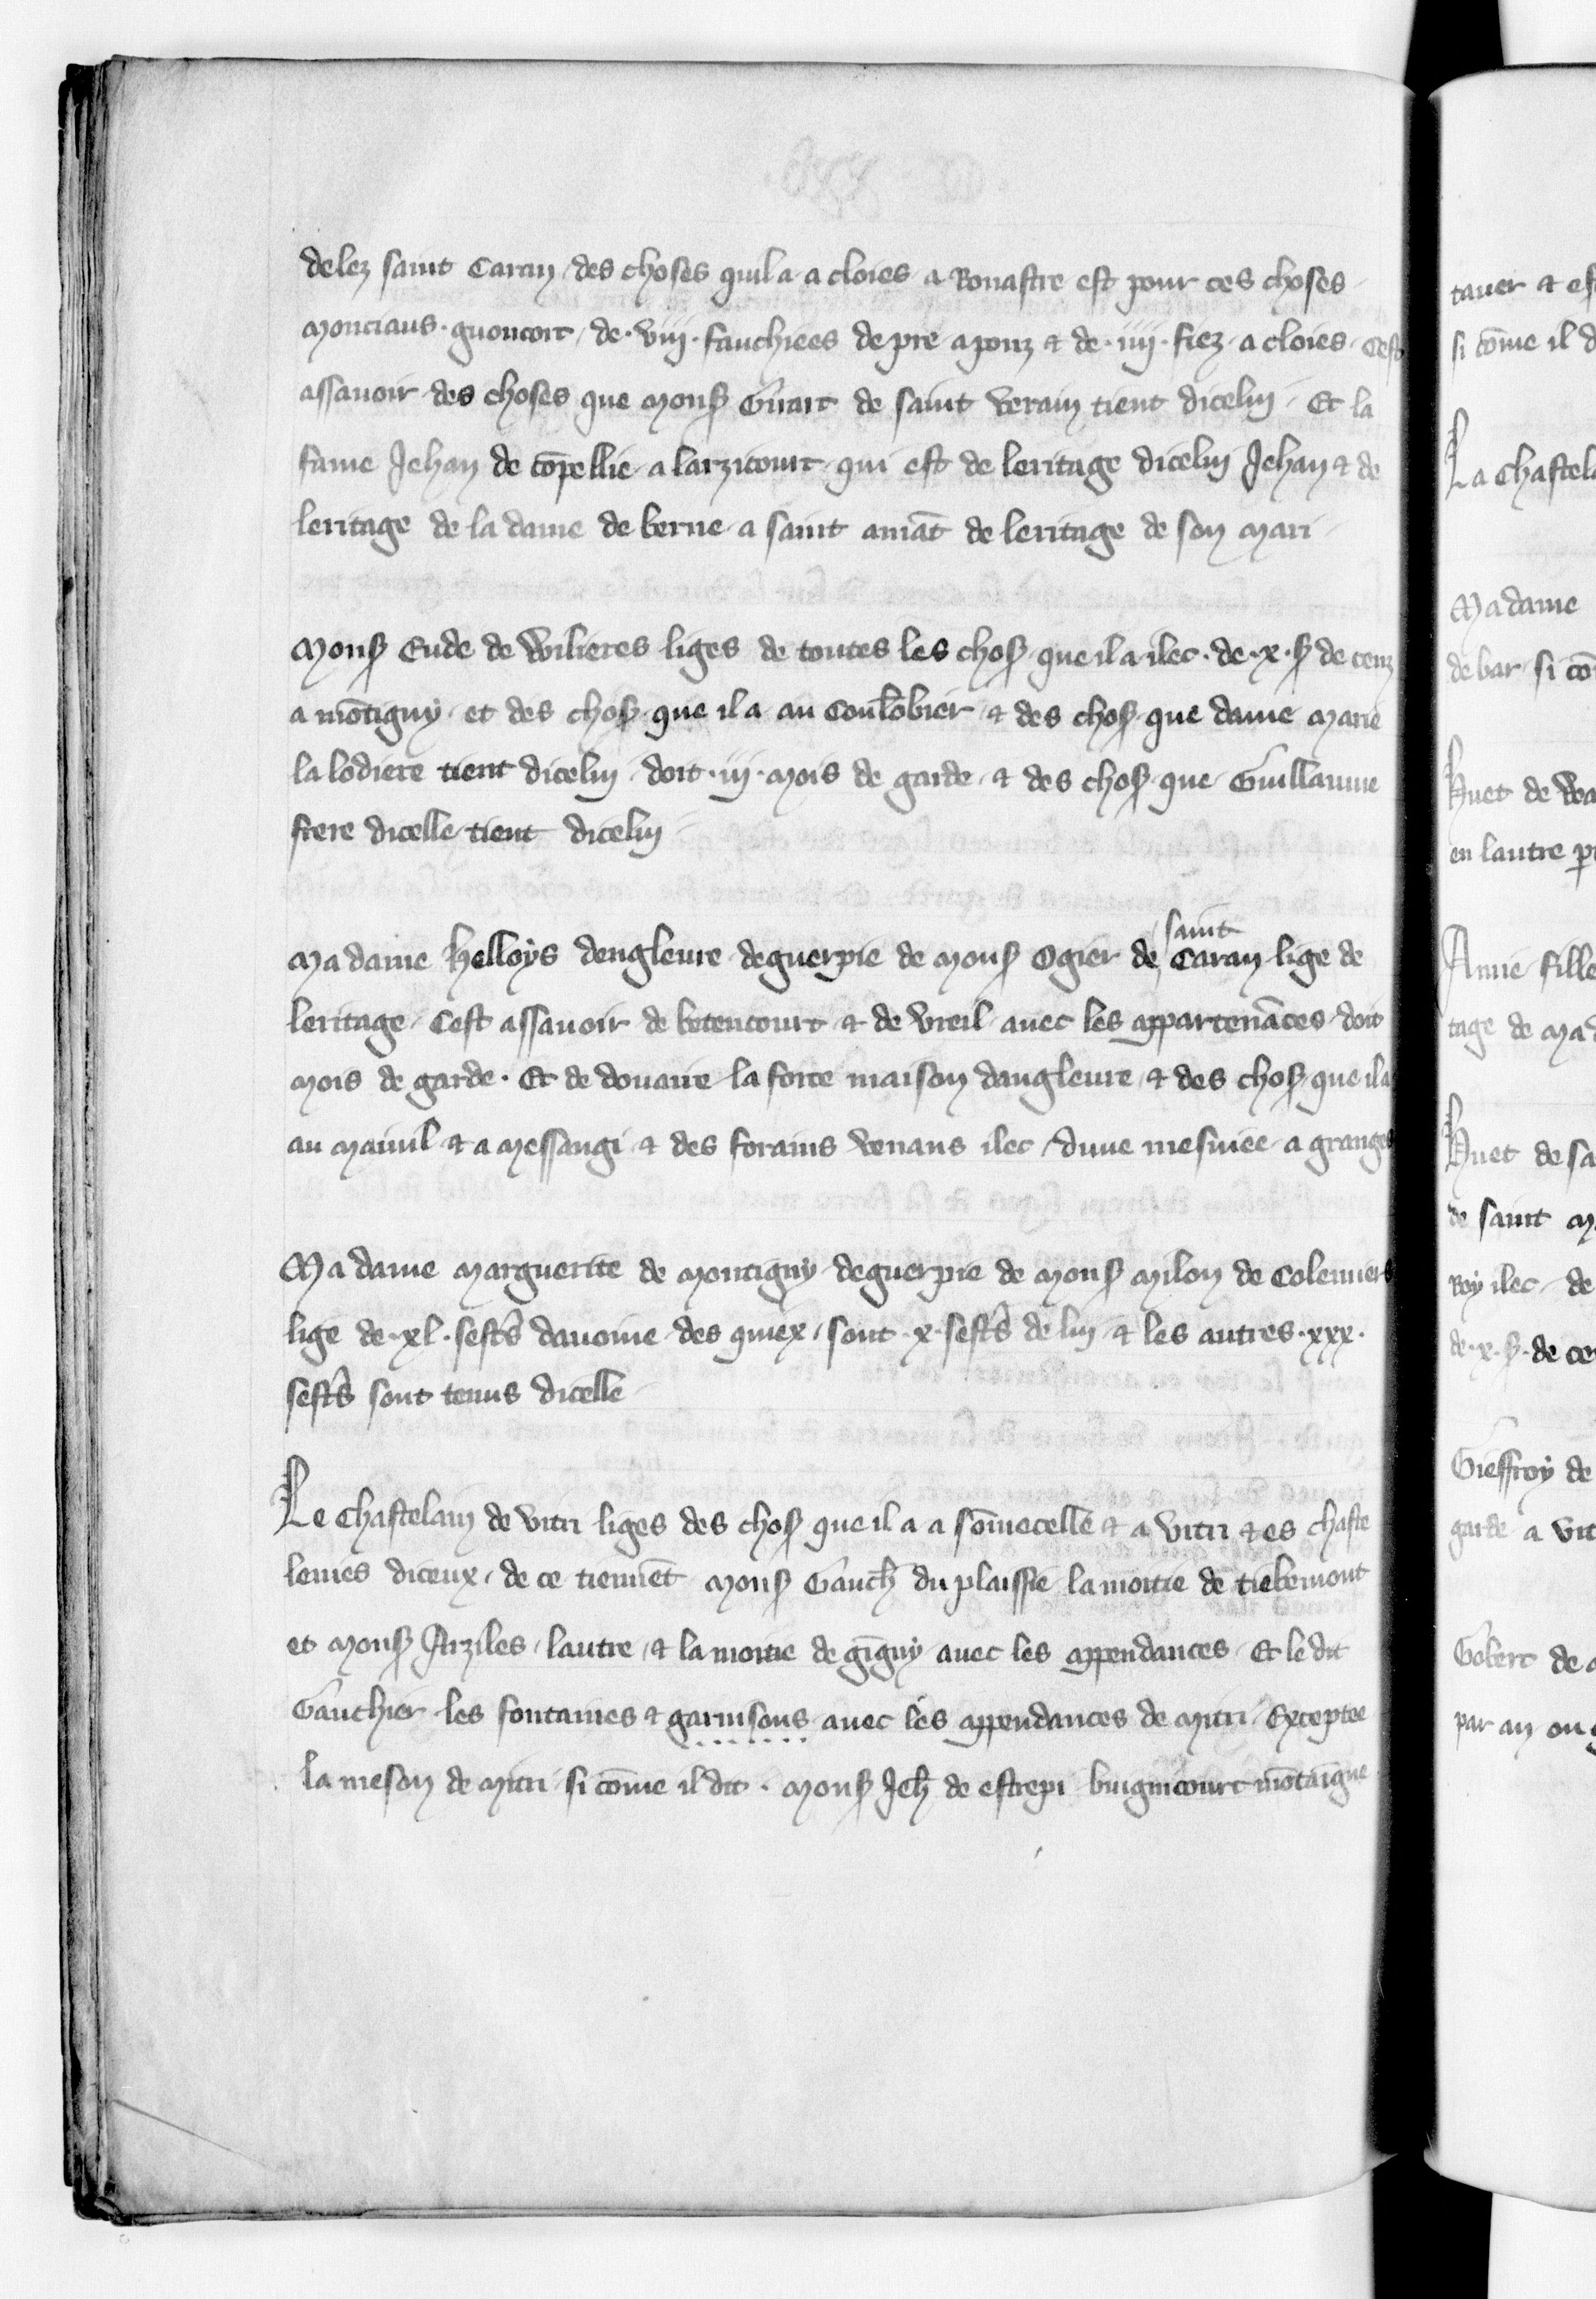 delez saint Caran / des choses quil a a cloies a Ronastre est pour ces choses
monciaus · guoncort / de · viij · fauchiees de pre aponz & de · iiij · fiez a cloies · Cest
assauoir des choses que mons Girart de saint verain tient dicelui / Et la
fame Jehan de cōpellie a larzicourt qui est de leritage dicelui Jehan & de
leritage de la dame de berne a saint amāt de leritage de son mari
mons Eude de wilieres liges de toutes les chos que il a ilec · de · x · s de cenz
a mōtigny · et des chos que il a au Coulōbier & des chos que dame marie
la lodiere tient dicelui doit · iij · mois de garde & des chos que Guillaume
frere dicelle tient dicelui
ma dame Helloys dengleure deguerpie de mons Ogier de saint Caran lige de
leritage / Cest assauoir de betencourt & de vreil auec les appartenāces doit
mois de garde · Et de douaire la forte maison dangleure & des chos que il a
au mainil & a messangi & des forains venans ilec / dune mesniee a granges
Ma dame marguerite de montigny deguerpie de mons milon de Colemiers
lige de · xl · sests dauoine des quiex / sont · x · sests de lui & les autres · xxx ·
sests sont tenus dicelle
Le Chastelain de vitri liges des chos que il a a sōmecelle & a vitri & es chaste
lenies diceux / de ce tiennēt mons Gauch du plaissie la moitie de tiebemont
et mons Arziles / lautre / & la moitie de gigny auec les appendances / Et le dit
Gauthier les fontaines & garnisons auec les appendances de mitri / Exceptee
la meson de mitri si cōme il dit · mons Jeh de estrepi buignicourt mōtaigne
tauer & es
si cōme il d
La Chastela
Madame
de bar si cō
Huet de wa
en lautre p
Anne fille
tage de mad
Huet de sa
de saint m
Roy ilec de
de · x · s · de ce
Gieffroy de
garde a vit
Gobert de
par an ou